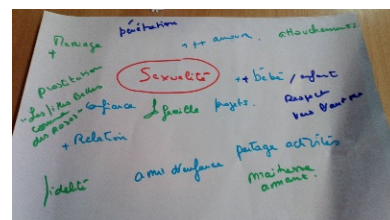 pénétration
+ Mariage
+++ amour.
attouchements
prostitution
Sexualité
++ bébé / enfant
"Les filles belles
comme
des roses"
confiance
famille
projets.
Respect
vers l'autre
+ Relation
partage activités
amis d'enfance
fidélité
maîtresse
amant.